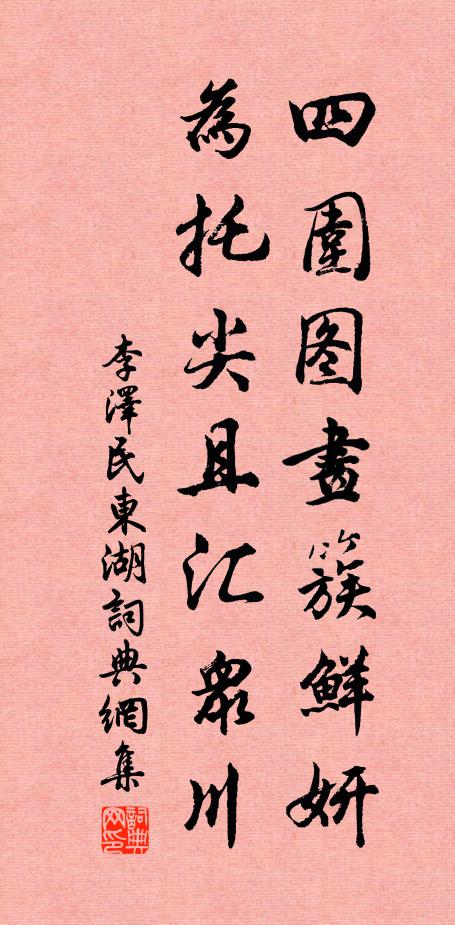 四圍图畫簇鮮妍
為托尖且汇眾川
李澤民東湖詞典網集
詞典网印